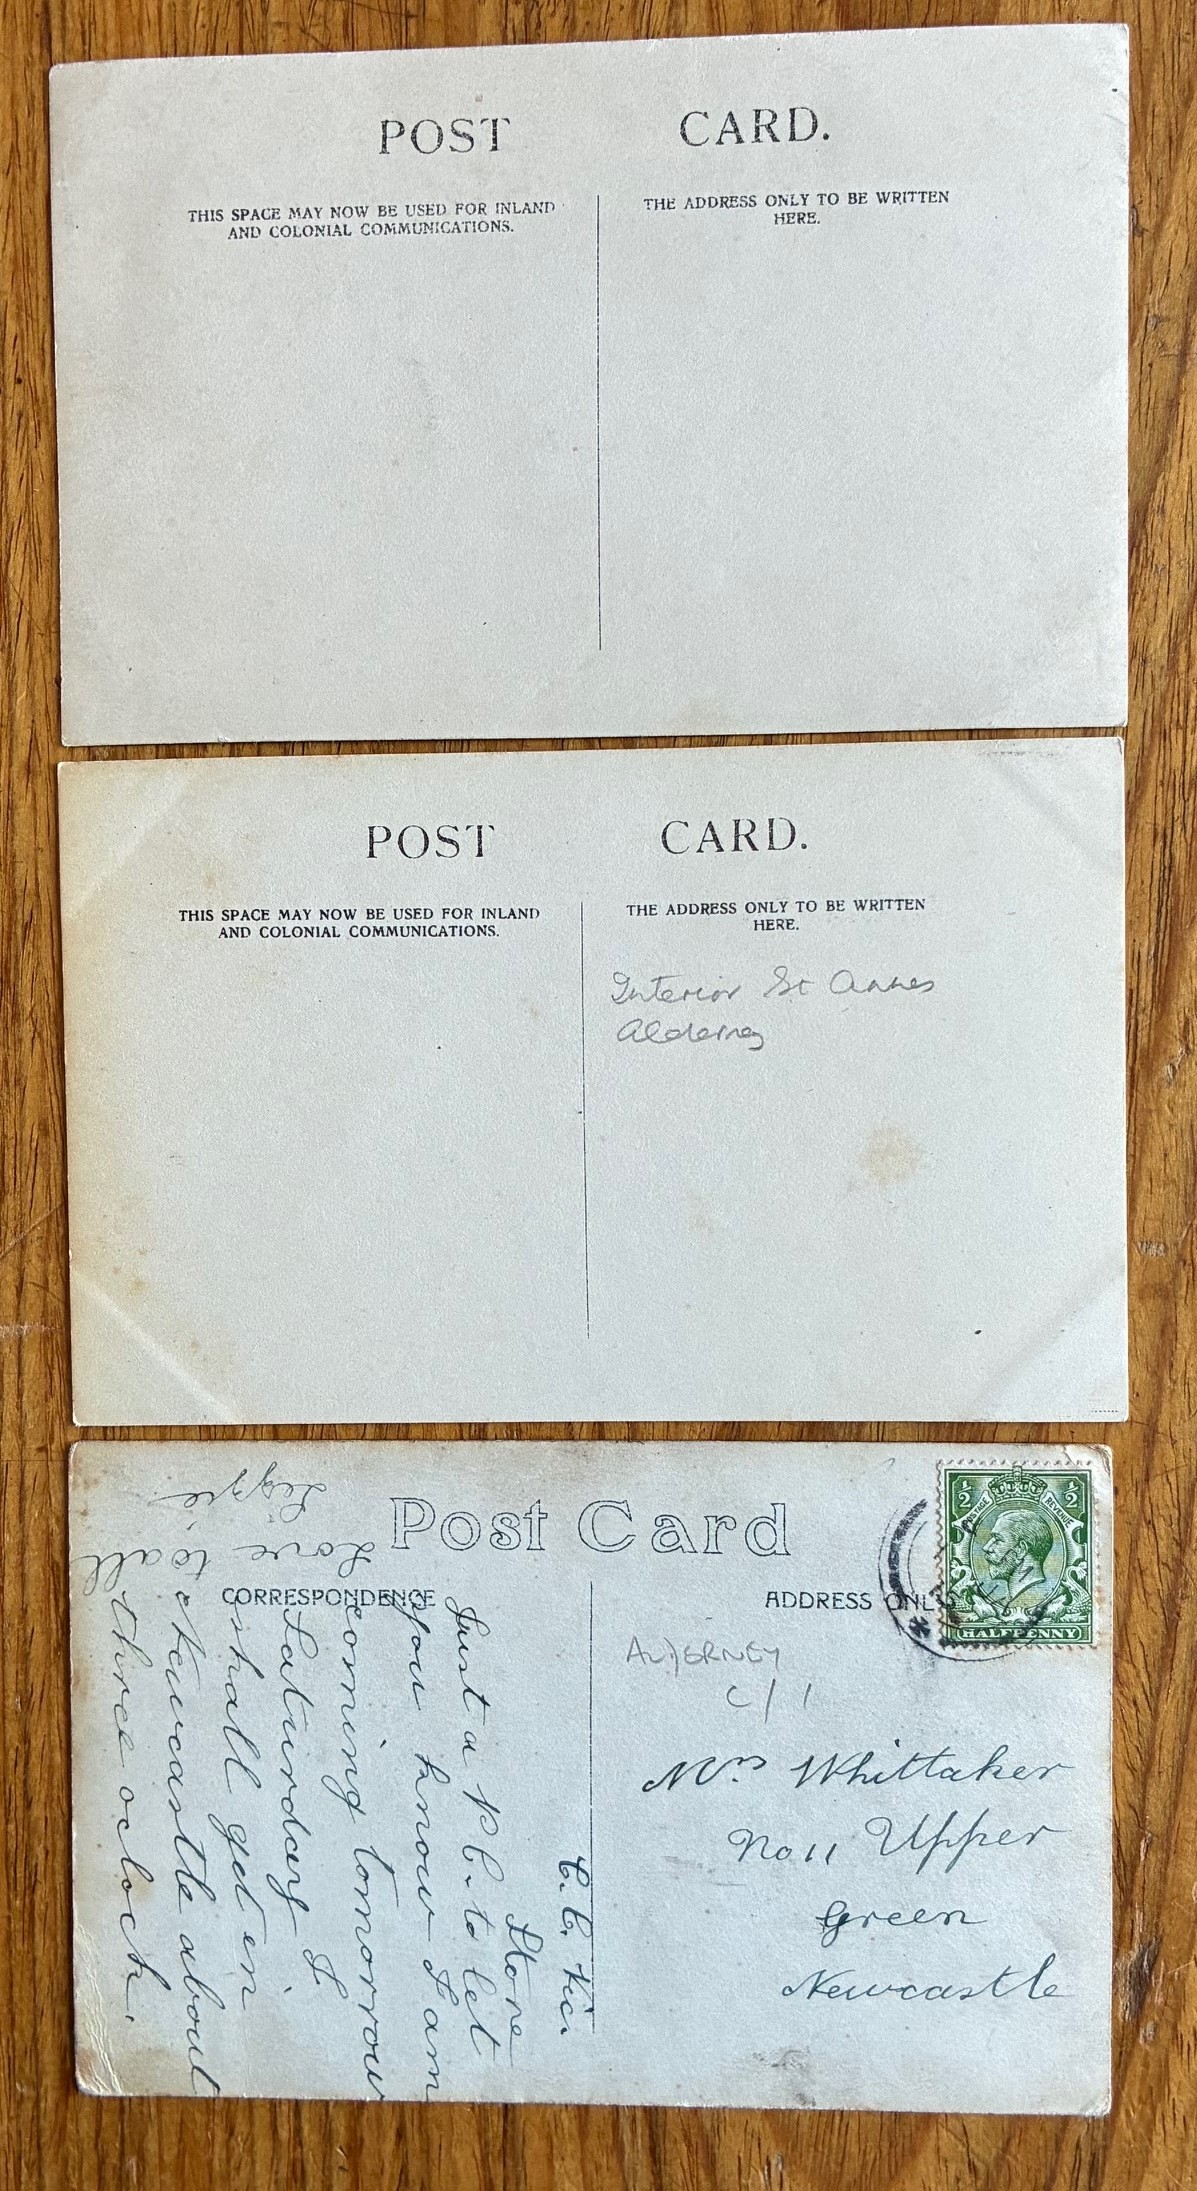 POST CARD.
THIS SPACE MAY NOW BE USED FOR INLAND
AND COLONIAL COMMUNICATIONS.
THE ADDRESS ONLY TO BE WRITTEN
HERE.
POST CARD.
THIS SPACE MAY NOW BE USED FOR INLAND
AND COLONIAL COMMUNICATIONS.
THE ADDRESS ONLY TO BE WRITTEN
HERE.
Interior St Annes
Alderney
Post Card
CORRESPONDENCE
ADDRESS ONLY
½ ½
POSTAGE REVENUE
HALFPENNY
ALDERNEY
C/1
Mrs Whittaker
No 11 Upper
Green
Newcastle
Stone
Just a P C. to let
you know I am
coming tomorrow
Saturday I
shall get in
Newcastle about
three oclock.
Love to all
Lizzie